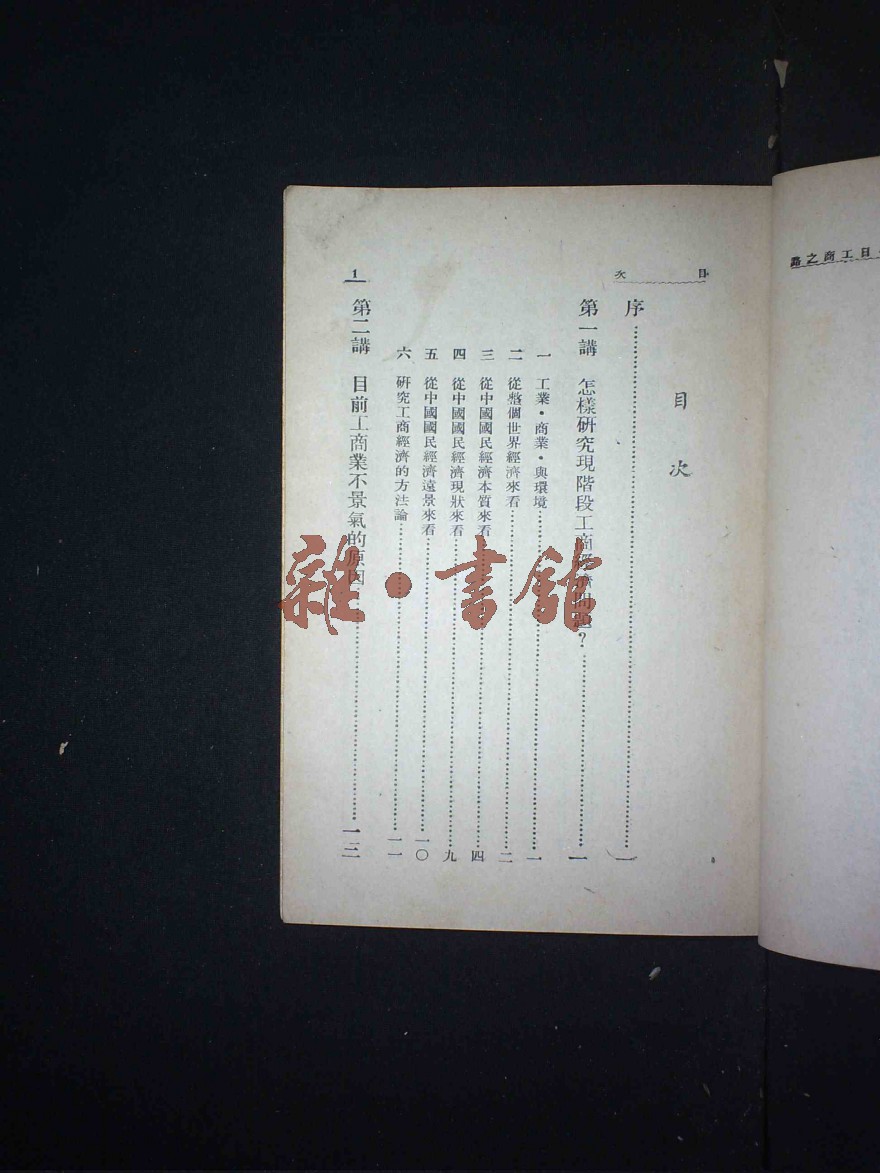 日工商之路
目次
1
目次
序……一
第一講 怎樣研究現階段工商經濟問題?……一
一 工業・商業・與環境……一
二 從整個世界經濟來看……二
三 從中國國民經濟本質來看……四
四 從中國國民經濟現狀來看……九
五 從中國國民經濟遠景來看……一〇
六 研究工商經濟的方法論……一一
第二講 目前工商業不景氣的原因……一三
雜・書館